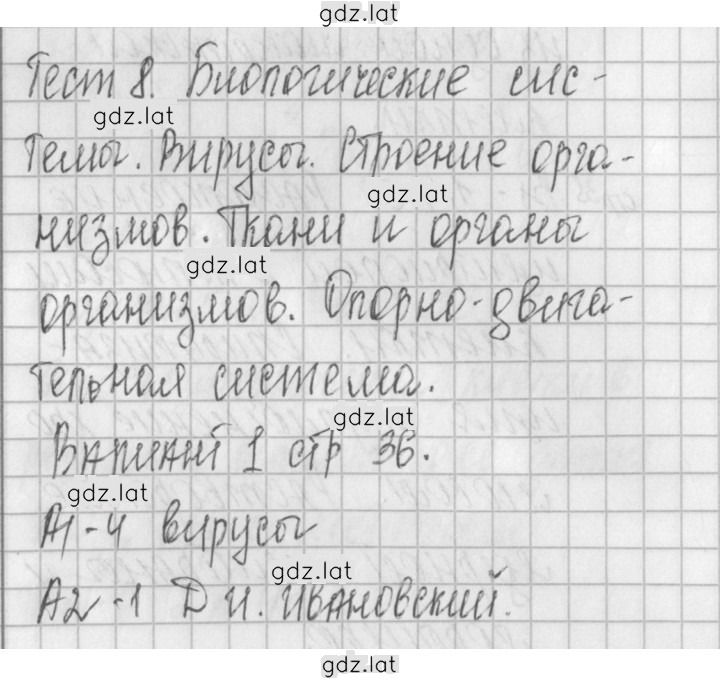 gdz.lat
Тест 8. Биологические сис-
gdz.lat
темы. Вирусы. Строение орга-
gdz.lat
низмов. Ткани и органы
gdz.lat
организмов. Опорно-двига-
тельная система.
gdz.lat
Вариант 1 стр 36.
gdz.lat
А1-4 вирусы
gdz.lat
А2-1 Д И. Ивановский.
gdz.lat